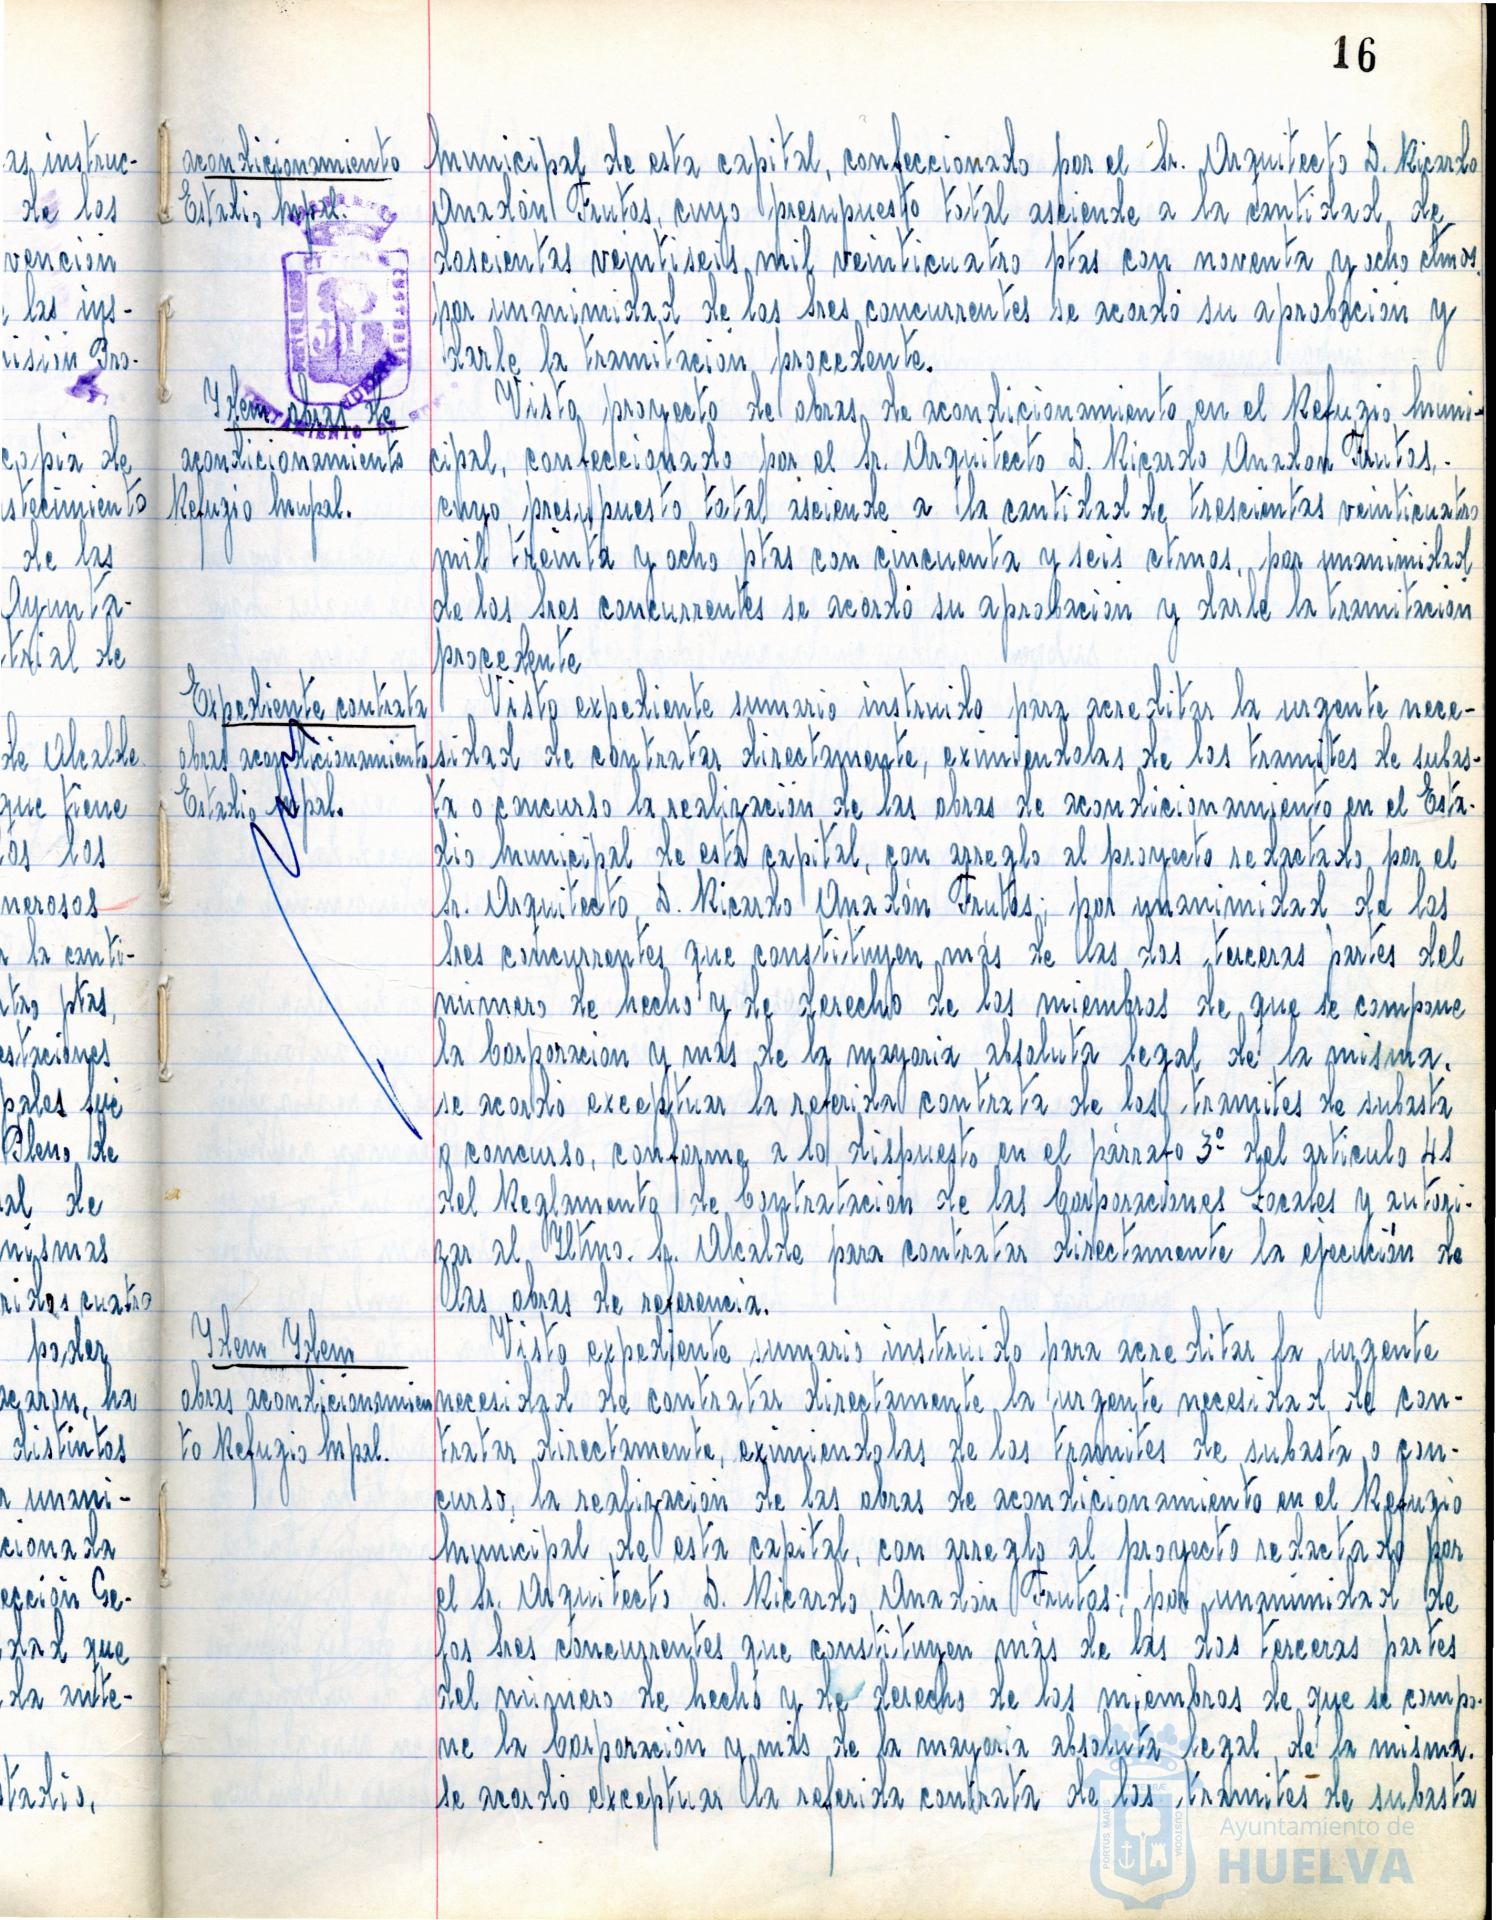 16
as instruc-
de los
vención
las ins-
isión Pro-
copia de
stecimiento
de las
Ayunta-
trial de
de Alcalde
que tiene
los
nerosos
la canti-
ptas,
estaciones
pales fué
Pleno de
al de
mismas
ridos cuatro
poder
ha
distintos
unani-
cionada
ección Ge-
dad que
da ante-
tadio,
acondicionamiento
Estadio Mupal.
Idem obras de
acondicionamiento
Refugio Mupal.
Expediente contrata
obras acondicionamiento
Estadio mpal.
Idem Idem
obras acondicionamien
to Refugio Mpal.
Municipal de esta capital, confeccionado por el Sr. Arquitecto D. Ricardo
Anadón Frutos, cuyo presupuesto total asciende a la cantidad de
doscientas veintiseis mil veinticuatro ptas con noventa y ocho ctmos.
por unanimidad de los Sres concurrentes se acordó su aprobación y
darle la tramitación procedente.
Visto proyecto de obras de acondicionamiento en el Refugio Muni-
cipal, confeccionado por el Sr. Arquitecto D. Ricardo Anadon Frutos,
cuyo presupuesto total asciende a la cantidad de trescientas veinticuatro
mil treinta y ocho ptas con cincuenta y seis ctmos, por unanimidad
de los Sres concurrentes se acordó su aprobación y darle la tramitación
procedente
Visto expediente sumario instruido para acreditar la urgente nece-
sidad de contratar directamente, eximiendolas de los tramites de subas-
ta o concurso la realización de las obras de acondicionamiento en el Esta-
dio Municipal de esta capital, con arreglo al proyecto redactado por el
Sr. Arquitecto D. Ricardo Anadón Frutos; por unanimidad de los
Sres concurrentes que constituyen más de las dos terceras partes del
número de hecho y de derecho de los miembros de que se compone
la Corporación y mas de la mayoria absoluta legal de la misma.
se acordó exceptuar la referida contrata de los tramites de subasta
o concurso, conforme a lo dispuesto en el párrafo 3º del articulo 41
del Reglamento de Contratación de las Corporaciones Locales y autori-
zar al Iltmo. Sr. Alcalde para contratar directamente la ejecución de
las obras de referencia.
Visto expediente sumario instruido para acreditar la urgente
necesidad de contratar directamente la urgente necesidad de con-
tratar directamente, eximiendolas de los tramites de subasta o con-
curso, la realización de las obras de acondicionamiento en el Refugio
Municipal de esta capital, con arreglo al proyecto redactado por
el Sr. Arquitecto D. Ricardo Anadón Frutos; por unanimidad de
los Sres concurrentes que constituyen más de las dos terceras partes
del número de hecho y de derecho de los miembros de que se compo-
ne la Corporación y más de la mayoria absoluta legal de la misma.
se acordó exceptuar la referida contrata de los tramites de subasta
Ayuntamiento de
HUELVA